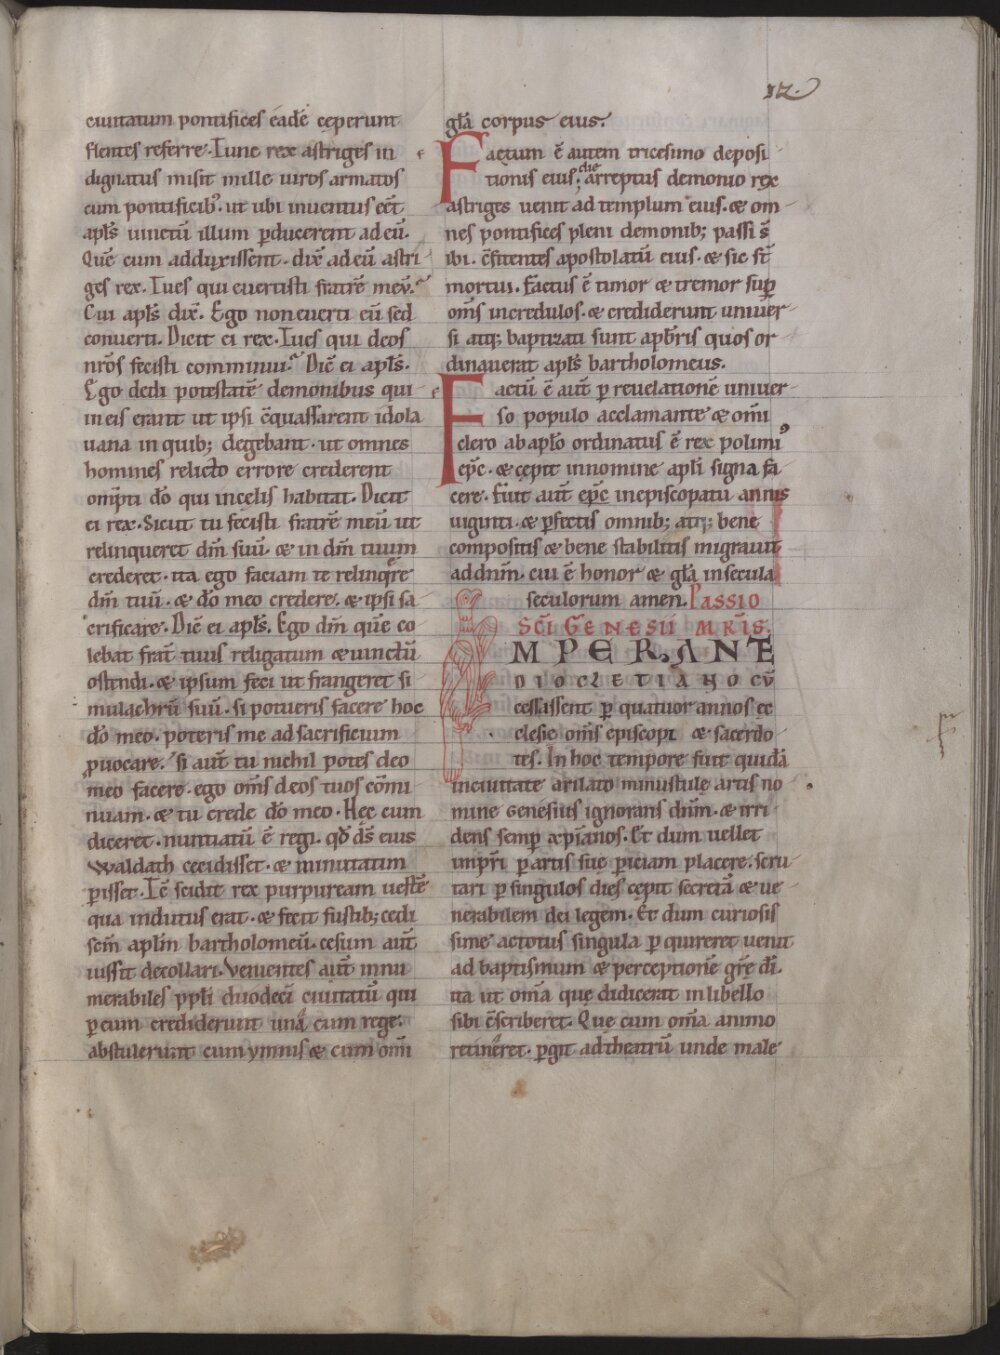 12.
ciuitatum pontifices eadē ceperunt
flentes referre. Tunc rex astriges in
dignatus misit mille uiros armatos
cum pontificib᷒. ut ubi inuentus eēt
apl̄s uinctū illum ꝑducerent ad eū.
Quē cum adduxissent. dix̄ ad eū astri
ges rex. Tu es qui euertisti fratrē meū?
Cui apl̄s dix̄. Ego non euerti eū sed
conuerti. Dicit ei rex. Tu es qui deos
nr̄os fecisti comminui? Dic̄ ei apl̄s.
Ego dedi potestatē demonibus qui
in eis erant ut ipsi c̄quassarent idola
uana in quib; degebant. ut omnes
homines relicto errore crederent
om̄pti dō qui in celis habitat. Dicit
ei rex. Sicut tu fecisti fratrē meū ut
relinqueret dm̄ suū. & in dm̄ tuum
crederet. ita ego faciam te relinqre
dm̄ tuū. & dō meo credere. & ipsi sa
crificare. Dic̄ ei apl̄s. Ego dm̄ quē co
lebat frat̄ tuus religatum & uinctū
ostendi. & ipsum feci ut frangeret si
mulachrū suū. si potueris facere hoc
dō meo. poteris me ad sacrificium
ꝓuocare. si aut̄ tu nichil potes deo
meo facere. ego om̄s deos tuos com̄i
nuam. & tu crede dō meo. Hęc cum
diceret. nuntiatū ē regi. qd̄ ds̄ eius
waldath cecidisset. & minutatim
ꝑisset. Tc̄ scidit rex purpuream uestē
qua indutus erat. & fecit fustib; cedi
scm̄ aplm̄ bartholomeū. cesum aut̄
iussit decollari. Venientes aut̄ innu
merabiles ppl̄i duodeci ciuitatū qui
ꝑ eum crediderunt una cum rege.
abstulerunt cum ymnis & cum om̄i
gl̄a corpus eius.
Factum ē autem tricesimo deposi
tionis eius die arreptus demonio rex
astriges uenit ad templum eius. & om
nes pontifices pleni demonib; passi s̄
ibi. c̄fitentes apostolatū eius. & sic st̄
mortui. Factus ē timor & tremor suꝑ
om̄s incredulos. & crediderunt uniuer
si atq; baptizati sunt a pbr̄is quos or
dinauerat apl̄s bartholomeus.
Factū ē aut̄ ꝑ reuelationē uniuer
so populo acclamante & om̄i
clero ab aplo ordinatus ē rex polimi᷒
epc̄. & cepit in nomine apl̄i signa fa
cere. Fuit aut̄ epc̄ in episcopatu annis
uiginti. & ꝑfectis omnib; atq; bene
compositis & bene stabilitis migrauit
ad dnm̄. cui ē honor & gl̄a in secula
seculorum amen. PASSIO
SC̄I GENESII MR̄IS.
IMPERANTE
DIOCLETIANO CV̄
cessissent ꝑ quatuor annos ec
clesie om̄s episcopi & sacerdo
tes. In hoc tempore fuit quidā
in ciuitate arilato minustule artis no
mine Genesius ignorans dn̄m. & irri
dens semꝑ xp̄ianos. Et dum uellet
impr̄i ꝑ artis sue ꝑiciam placere. scru
tari ꝑ singulos dies cepit secreta & ue
nerabilem dei legem. Et dum curiosis
sime ac totus singula ꝑ quireret uenit
ad baptismum & perceptionē gr̄e dī.
ita ut om̄a que didicerat in libello
sibi c̄scriberet. Que cum om̄a animo
retineret. ꝑgit ad theatrū unde male